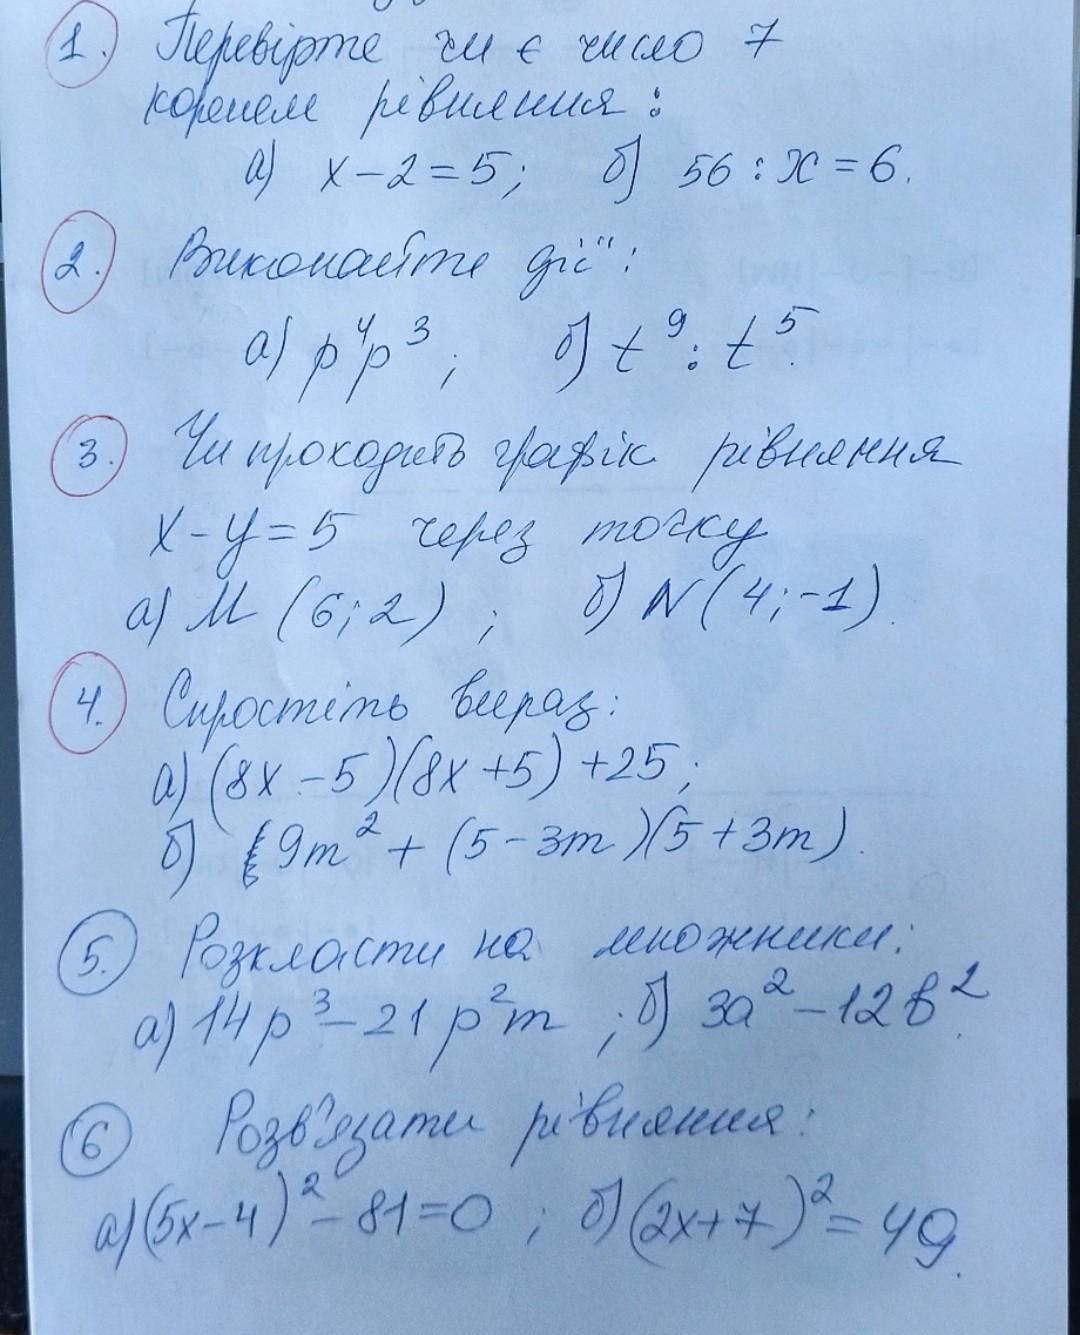 1. Перевірте чи є число 7
коренем рівняння:
а) x - 2 = 5; б) 56 : x = 6.
2. Виконайте дії:
а) p⁴p³; б) t⁹ : t⁵.
3. Чи проходить графік рівняння
x - y = 5 через точку
а) M (6; 2); б) N (4; -1).
4. Спростіть вираз:
а) (8x - 5)(8x + 5) + 25;
б) 9m² + (5 - 3m)(5 + 3m).
5. Розкласти на множники:
а) 14p³ - 21p²m; б) 3a² - 12b².
6 Розв'язати рівняння:
а) (5x - 4)² - 81 = 0; б) (2x + 7)² = 49.